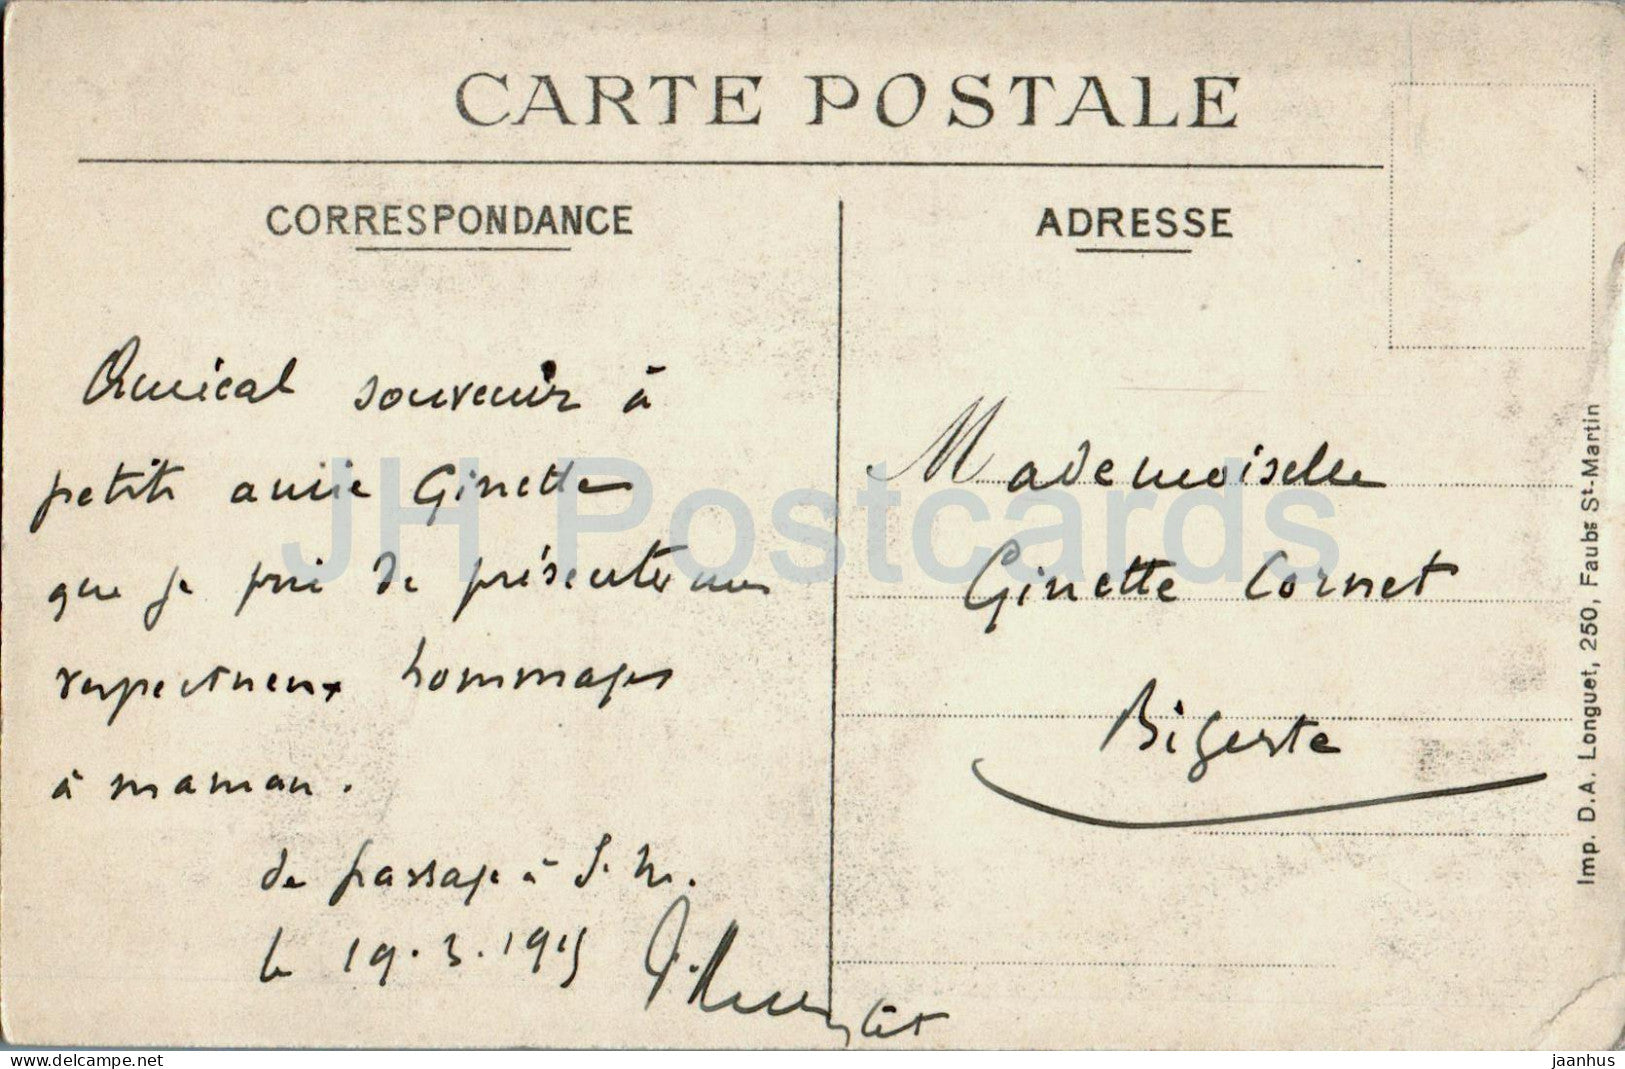 CARTE POSTALE
CORRESPONDANCE
Amical souvenir à
petite amie Ginette
que je prie de présenter mes
respectueux hommages
à maman.
de passage à S. M.
le 19.3.1915
ADRESSE
Mademoiselle
Ginette Cornet
Bigerte
Imp. D.A. Longuet, 250, Faubg St-Martin
JH Postcards
www.delcampe.net
jaanhus